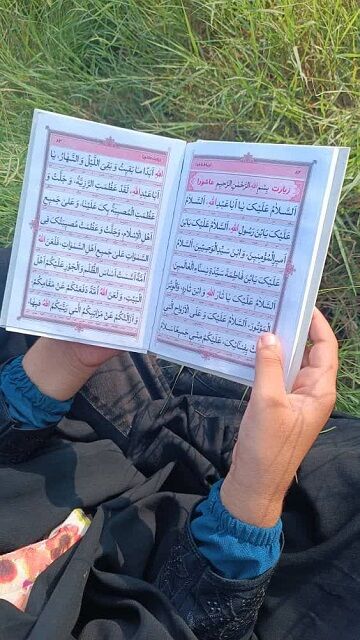 زیارت عاشورا
بِسْمِ اللهِ الرَّحْمٰنِ الرَّحیمِ
اَلسَّلامُ عَلَیْکَ یا اَباعَبْدِاللهِ، اَلسَّلامُ
عَلَیْکَ یَابْنَ رَسُولِ اللهِ، اَلسَّلامُ عَلَیْکَ یَابْنَ
اَمیرِالْمُؤْمِنینَ، وَ ابْنَ سَیِّدِ الْوَصِیّینَ، اَلسَّلامُ
عَلَیْکَ یَابْنَ فاطِمَةَ سَیِّدَةِ نِساءِ الْعالَمینَ
اَلسَّلامُ عَلَیْکَ یا ثارَ اللهِ وَ ابْنَ ثارِهِ وَ الْوِتْرَ
الْمَوْتُورَ، اَلسَّلامُ عَلَیْکَ وَ عَلَی الْاَرْواحِ الَّتی
بِفِنائِکَ، عَلَیْکُمْ مِنّی جَمیعًا سَلامُ
اللهِ اَبَدًا ما بَقیتُ وَ بَقِیَ اللَّیْلُ وَ النَّهارُ، یا
اَباعَبْدِاللهِ، لَقَدْ عَظُمَتِ الرَّزِیَّةُ، وَ جَلَّتْ وَ
عَظُمَتِ الْمُصیبَةُ بِکَ عَلَیْنا، وَ عَلی جَمیعِ
اَهْلِ الْاِسْلامِ، وَ جَلَّتْ وَ عَظُمَتْ مُصیبَتُکَ فِی
السَّمٰواتِ عَلی جَمیعِ اَهْلِ السَّمٰواتِ، فَلَعَنَ اللهُ
اُمَّةً اَسَّسَتْ اَساسَ الظُّلْمِ وَ الْجَوْرِ عَلَیْکُمْ اَهْلَ
الْبَیْتِ، وَ لَعَنَ اللهُ اُمَّةً دَفَعَتْکُمْ عَنْ مَقامِکُمْ
وَ اَزالَتْکُمْ عَنْ مَراتِبِکُمُ الَّتی رَتَّبَکُمُ اللهُ فیها،